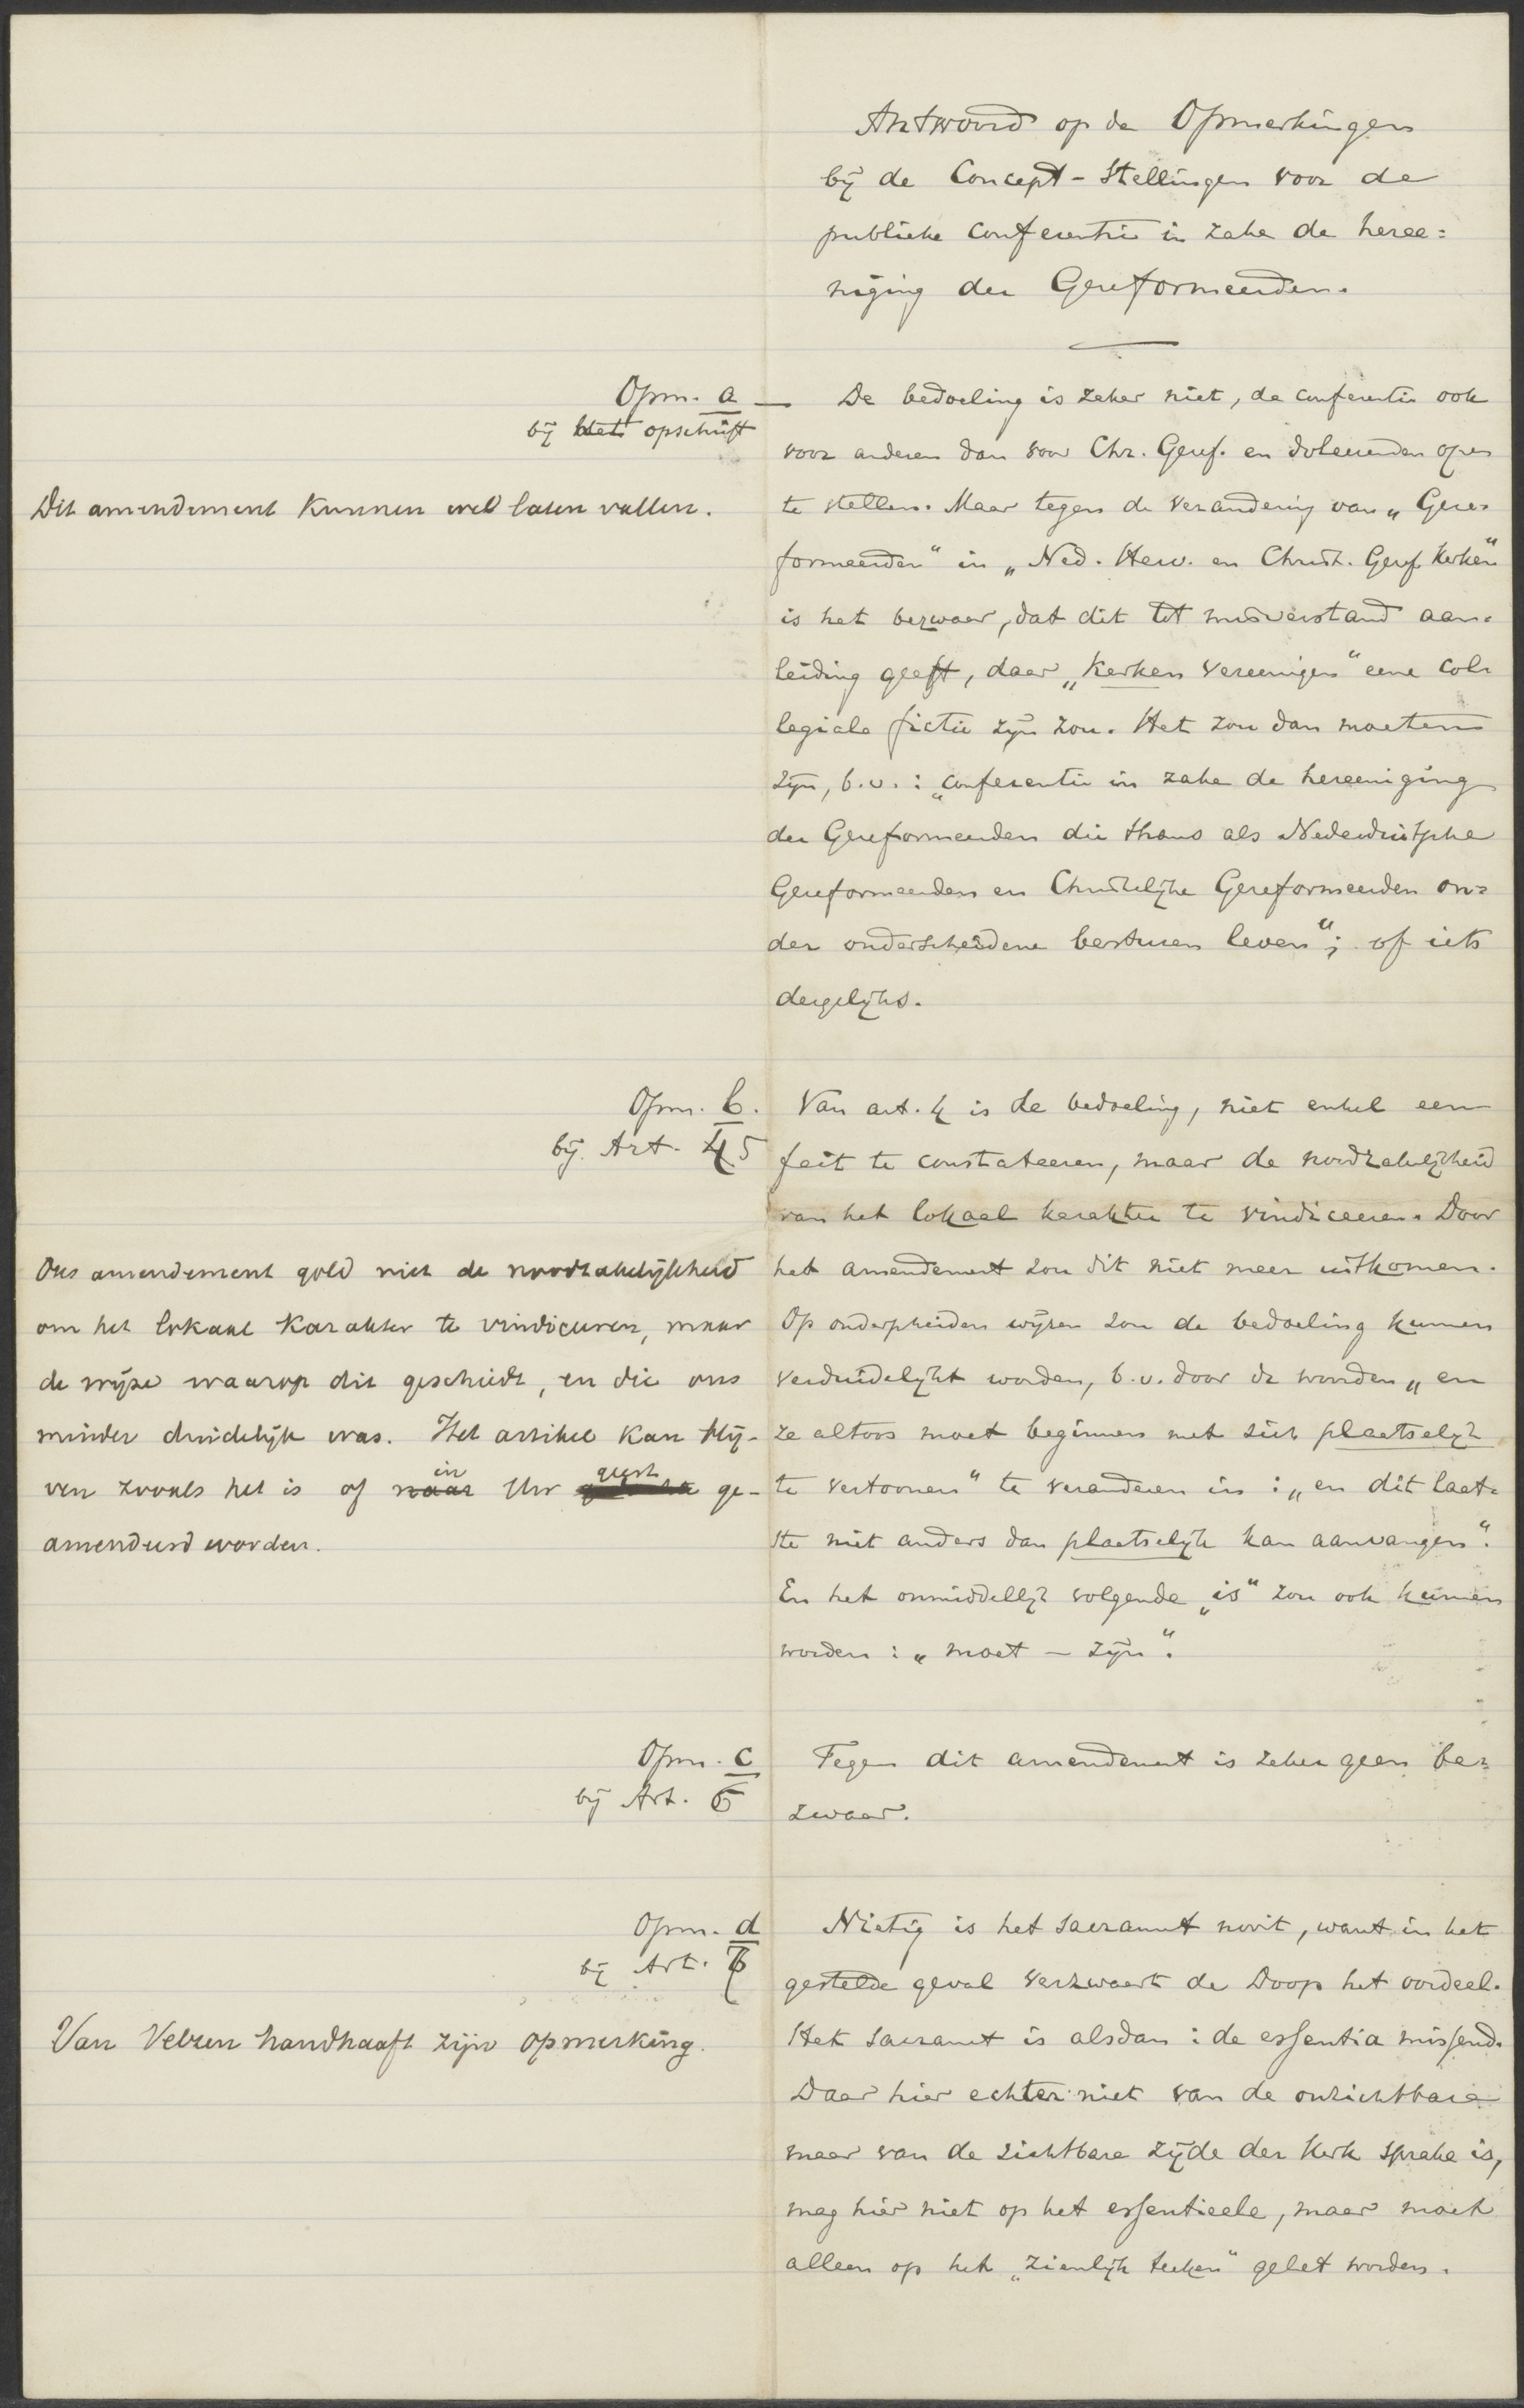 Antwoord op de Opmerkingen
bij de Concept-Stellingen voor de
publieke conferentie in zake de heree=
niging der Gereformeerden.
Opm. a —
bij het opschrift
Dit amendement kunnen wel laten vallen.
De bedoeling is zeker niet, de conferentie ook
voor anderen dan voor Chr. Geref. en doleerenden open
te stellen. Maar tegen de verandering van „Gere=
formeerden" in „Ned. Herv. en Christ. Geref. Kerken"
is het bezwaar, dat dit tot misverstand aan=
leiding geeft, daar „Kerken vereenigen" eene col=
legiale fictie zijn zou. Het zou dan moeten
zijn, b.v.: „conferentie in zake de hereeniging
der Gereformeerden die thans als Nederduitsche
Gereformeerden en Christelijke Gereformeerden on=
der onderscheidene besturen leven"; of iets
dergelijks.
Opm. b.
bij Art. 4 5
Ons amendement gold niet de noodzakelijkheid
om het lokaal karakter te vindiceeren, maar
de wijze waarop dit geschiedt, en die ons
minder duidelijk was. Het artikel kan blij-
ven zooals het is of naar in Uw geest ge-
amendeerd worden.
Van art. 4 is de bedoeling, niet enkel een
feit te constateeren, maar de noodzakelijkheid
van het lokaal karakter te vindiceeren. Door
het amendement zou dit niet meer uitkomen.
Op onderscheiden wijzen zou de bedoeling kunnen
verduidelijkt worden, b.v. door de woorden „en
ze altoos moet beginnen met zich plaatselijk
te vertoonen" te veranderen in: „en dit laat=
ste niet anders dan plaatselijk kan aanvangen".
En het onmiddellijk volgende „is" zou ook kunnen
worden: „moet — zijn".
Opm. c
bij Art. 6
Tegen dit amendement is zeker geen be=
zwaar.
Opm. d
bij Art. 7
Van Velzen handhaaft zijn opmerking.
Nietig is het sacrament nooit, want in het
gestelde geval verzwaart de Doop het oordeel.
Het sacrament is alsdan: de essentia missend.
Daar hier echter niet van de onzichtbare
maar van de zichtbare zijde der Kerk sprake is,
mag hier niet op het essentieele, maar moet
alleen op het „zienlijk teeken" gelet worden.